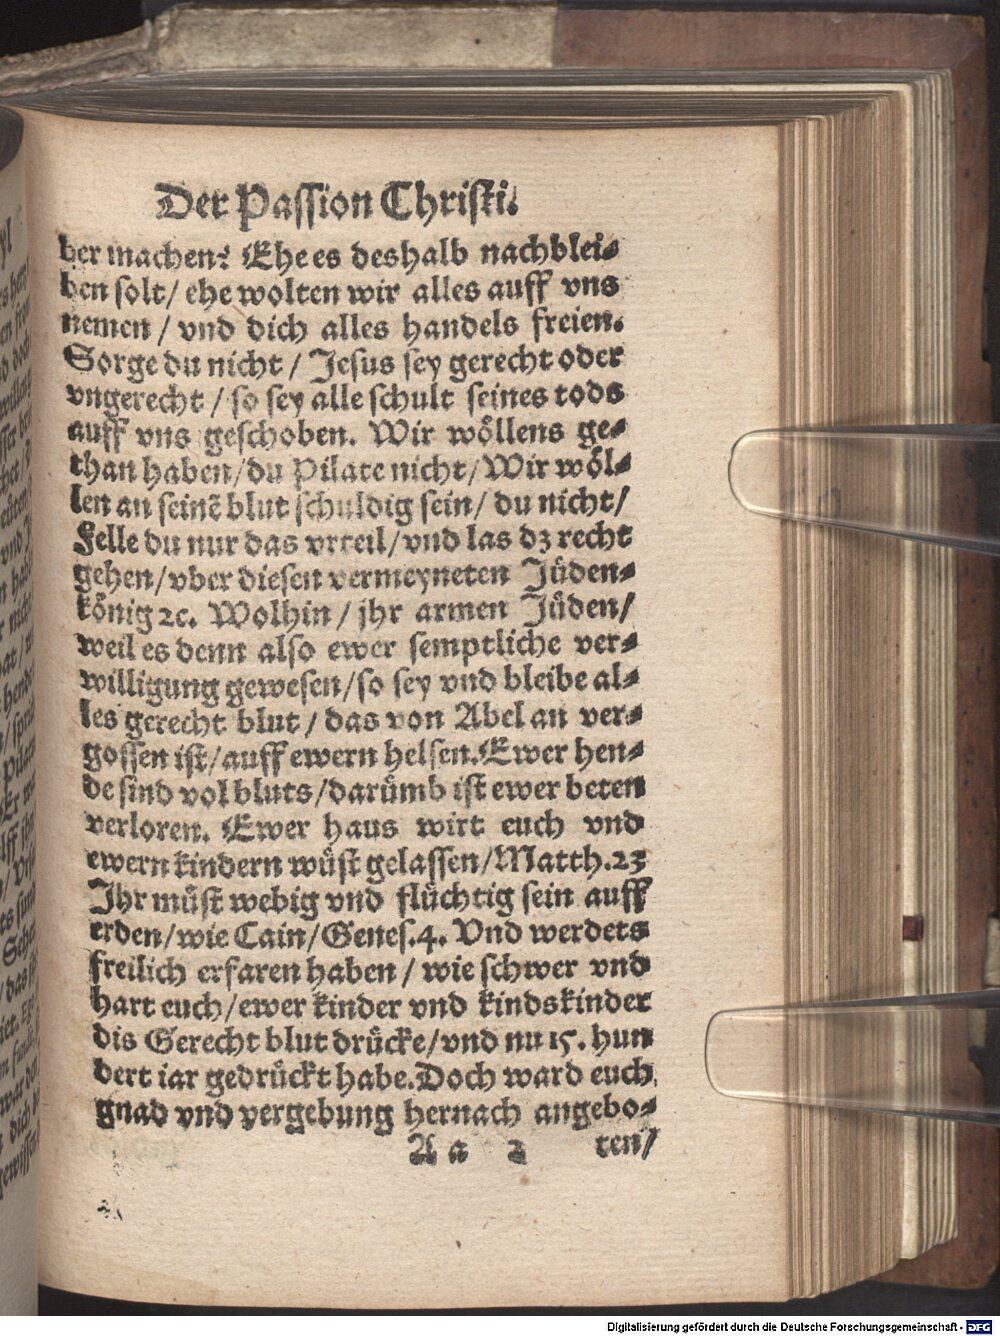 Der Passion Christi.
ber machen? Ehe es deshalb nachblei⸗
ben solt/ ehe wolten wir alles auff vns
nemen / vnd dich alles handels freien.
Sorge du nicht / Jesus sey gerecht oder
vngerecht / so sey alle schult seines tods
auff vns geschoben. Wir wöllens ge⸗
than haben/du Pilate nicht/Wir wöl⸗
len an seinē blut schuldig sein/ du nicht/
Felle du nur das vrteil/vnd las dz recht
gehen/vber diesen vermeyneten Jüden⸗
könig ꝛc. Wolhin / jhr armen Jüden/
weil es denn also ewer semptliche ver⸗
willigung gewesen/so sey vnd bleibe al⸗
les gerecht blut / das von Abel an ver⸗
gossen ist/auff ewern helsen.Ewer hen⸗
de sind vol bluts/darümb ist ewer beten
verloren. Ewer haus wirt euch vnd
ewern kindern wüst gelassen/Matth.23
Jhr müst webig vnd flüchtig sein auff
erden/wie Cain/Genes.4. Vnd werdets
freilich erfaren haben / wie schwer vnd
hart euch/ewer kinder vnd kindskinder
dis Gerecht blut drücke/vnd nu 15. hun
dert iar gedrückt habe.Doch ward euch
gnad vnd vergebung hernach angebo⸗
A a 2 ten/
Digitalisierung gefördert durch die Deutsche Forschungsgemeinschaft - DFG